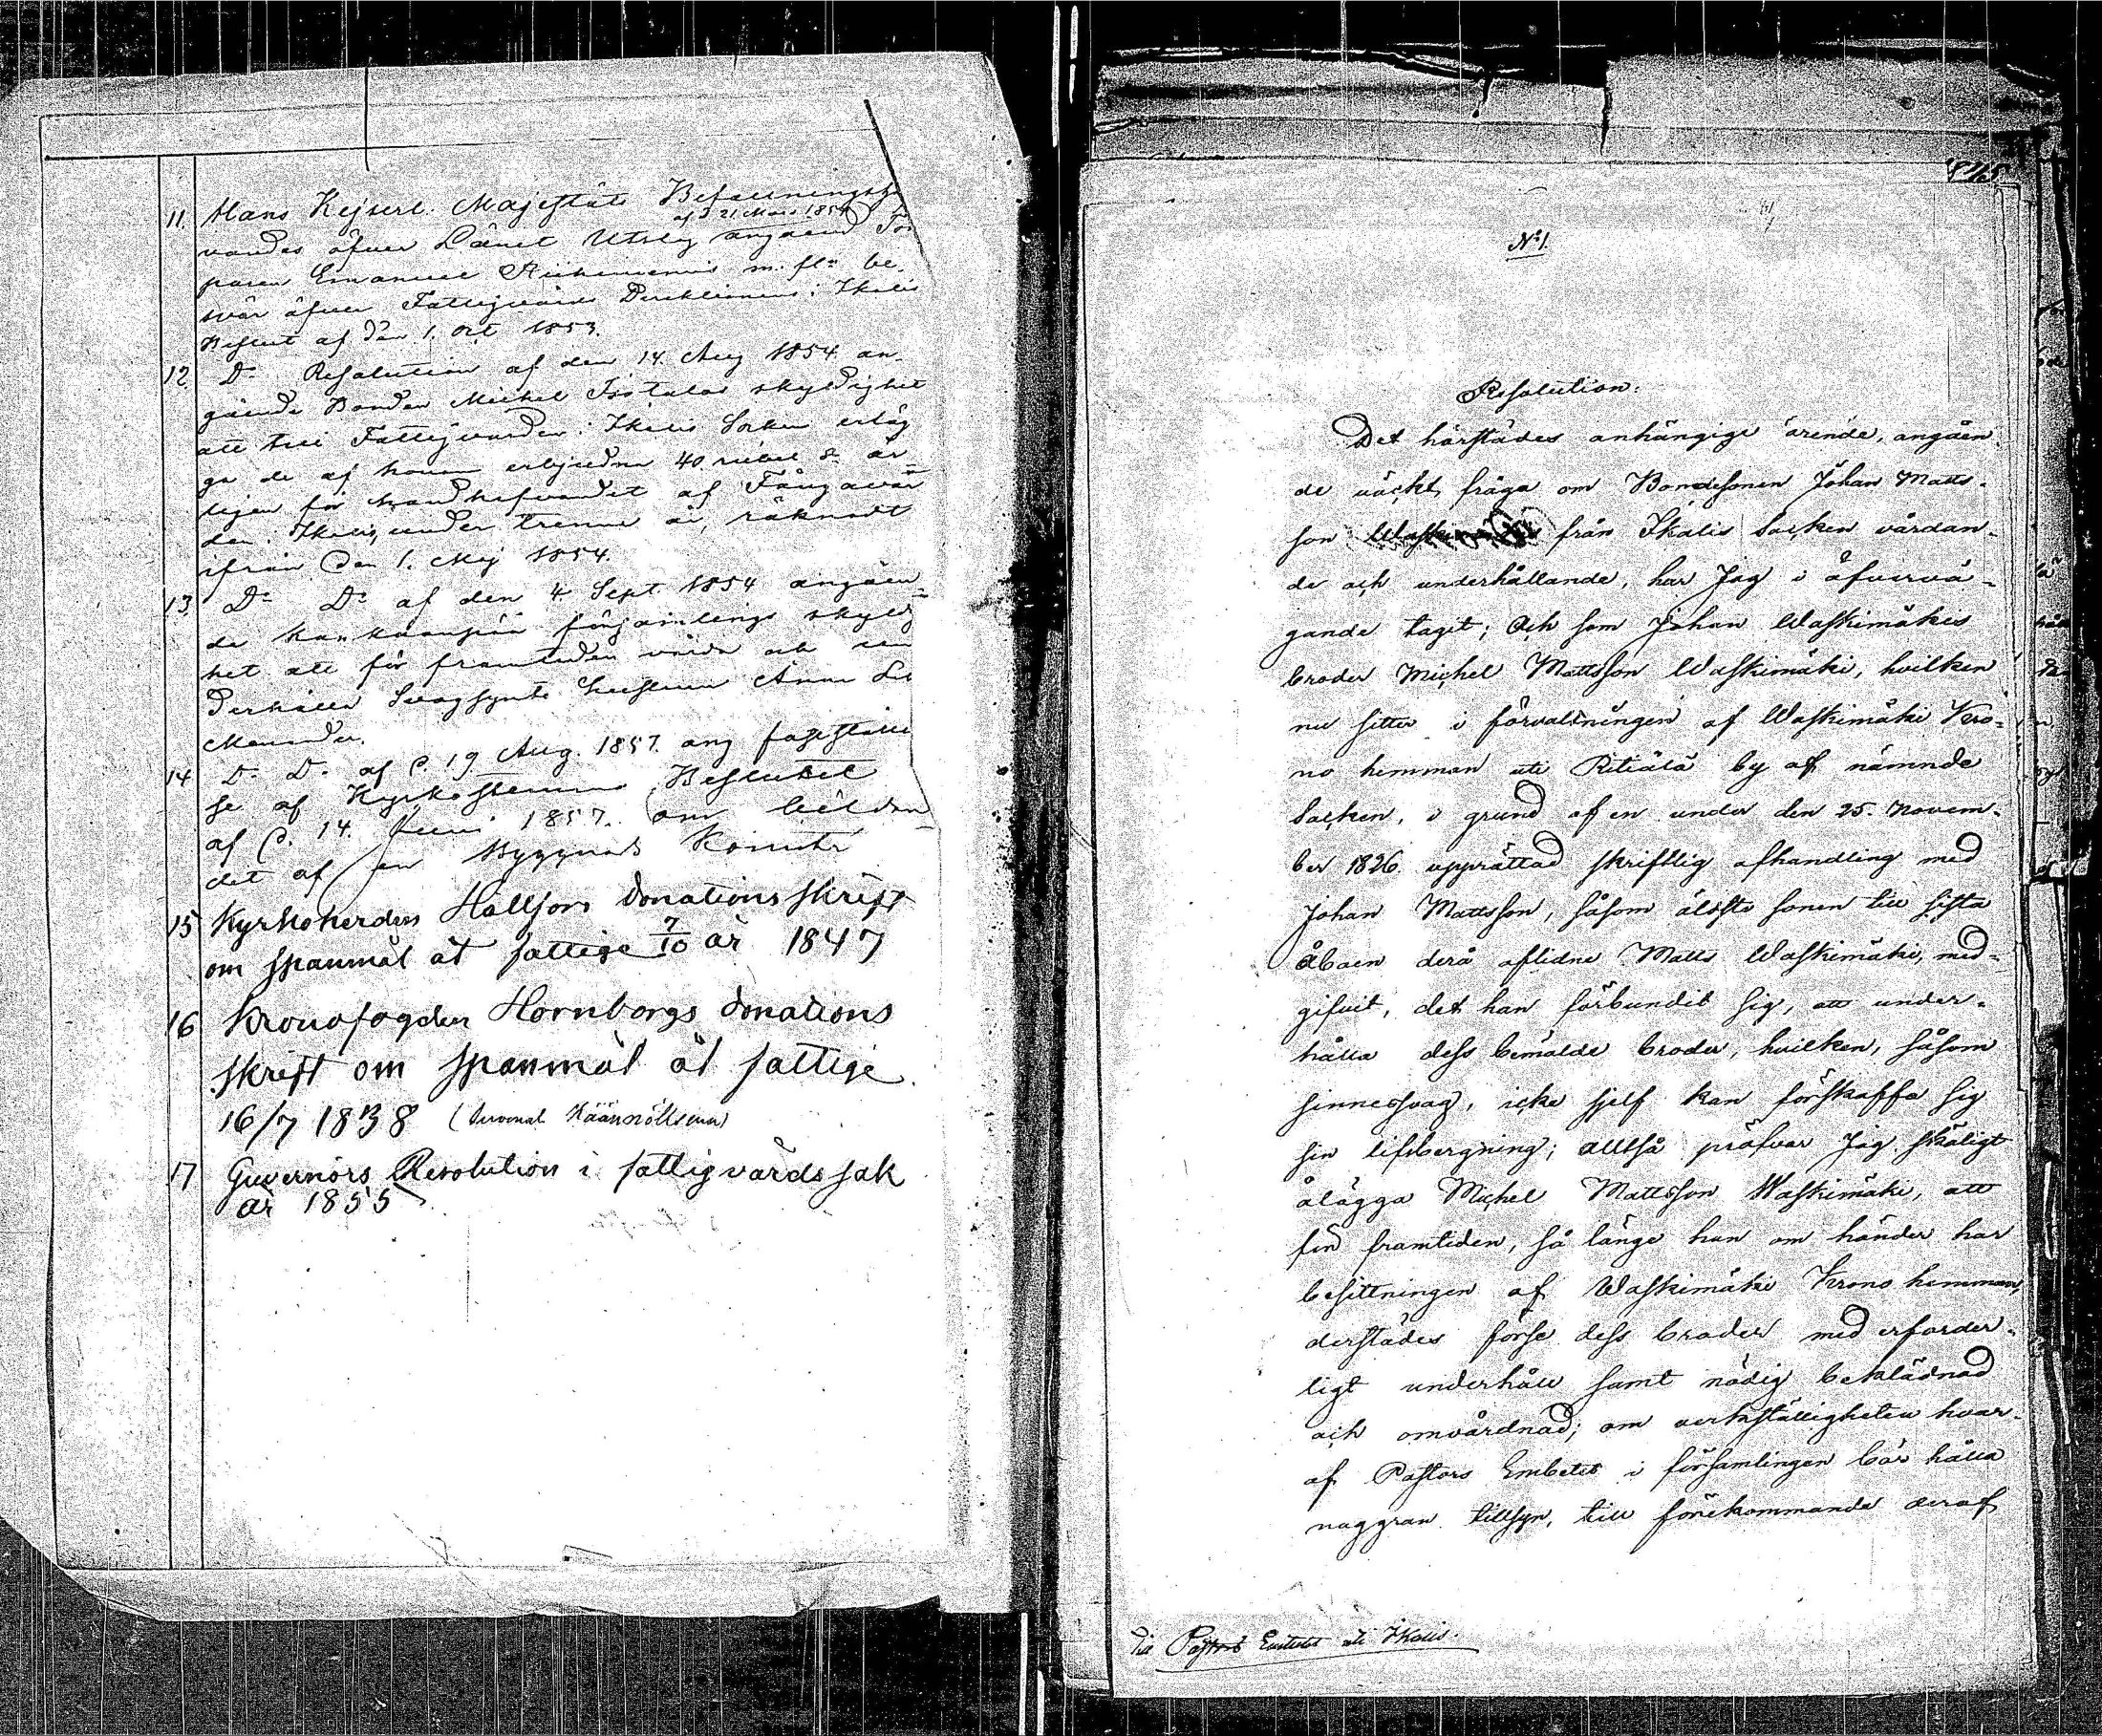 11. Hans Kejserl. Majestäts Befallningsha
af d 21 Mars 1854
vandes öfver Länet Utslag angående Tor
paren Emanuel m. fl. be-
svär öfver Fattigvårds Direktionens i Ikalis
Beslut af den 1. Oct 1853.
12. Do Resolution af den 14. Aug 1854 an-
gående Bonden Michel skyldighet
att till Fattigvården i Ikalis Socken erläg
ga de af honom erbjudna 40 rubel Sr år
ligen för handhafvandet af Fångavår
den i Ikalis, under trenne år, räknadt
ifrån den 1. Maj 1854.
13 Do Do af den 4. Sept. 1854 angåen
de församlings skyldig
het att för framtiden vårda och un
derhålla Svagsynta Anna
14 Do Do af d. 19 Aug. 1857. ang fastställel
se af Kyrkostemmo Beslutet
af d. 14. Juni 1857. om bildan
det af en Byggnads Komité
15 Kyrkoherden Hällfors Donations skrift
om spanmål åt fattige 7/10 år 1847
16 Kronofogden Hornborgs donations
skrift om spanmål åt fattige
16/7 1838 (
17 Guvernörs Resolution i fattigvårds sak
år 1855
No 1.
Resolution:
Det härstädes anhängige ärende, angåen
de väckt fråga om Bondesonen Johan Matts-
son från Ikalis Socken vårdan-
de och underhållande, har Jag i öfvervä-
gande tagit; Och som Johan Waskimäkis
broder Michel Mattsson Waskimäki, hvilken
nu sitter i förvaltningen af Waskimäki Kro-
no hemman uti Riitiälä by af nämnde
Socken, i grund af en under den 25. Novem-
ber 1826. upprättad skriftlig afhandling med
Johan Mattsson, såsom äldste sonen till sista
åboen derå aflidne Matts Waskimäki, med-
gifvit, det han förbundit sig, att under-
hålla dess bemälde broder, hvilken, såsom
sinnessvag, icke sjelf kan förskaffa sig
sin lifsbergning; alltså pröfvar Jag skäligt
ålägga Michel Mattsson Waskimäki, att
för framtiden, så länge han om händer har
besittningen af Waskimäki Krono hemman,
derstädes förse dess broder med erforder-
ligt underhåll samt nödig beklädnad
och omvårdnad; om verkställigheten hvar-
af Pastors Embetet i församlingen bör hålla
noggran tillsyn, till förekommande deraf
Till Pastors Embetet uti Ikalis.